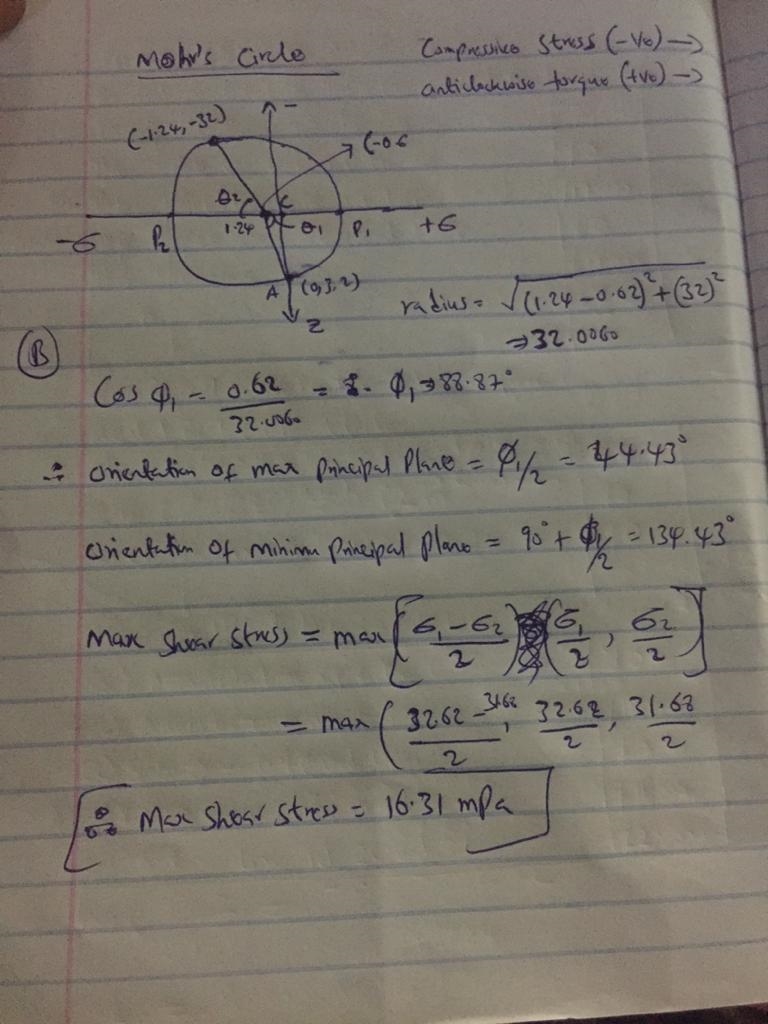 Mohr's Circle
Compressive Stress (-ve) →
anticlockwise torque (+ve) →
(-1.24, -32)
-
(-0.6
θ2
C
1.24
θ1
P2
P1
-σ
+σ
A (0, 3.2)
Z
radius = √(1.24 - 0.62)² + (32)²
⇒ 32.0060
(B)
Cos ϕ1 = 0.62/32.0060 = ϕ1 ⇒ 88.87°
∴ orientation of max principal plane = ϕ1/2 = 44.43°
orientation of minimum principal plane = 90° + ϕ1/2 = 134.43°
Max shear stress = max [σ1 - σ2/2, σ1/2, σ2/2]
= max (32.62 - 31.68/2, 32.62/2, 31.68/2
∴ Max shear stress = 16.31 mPa